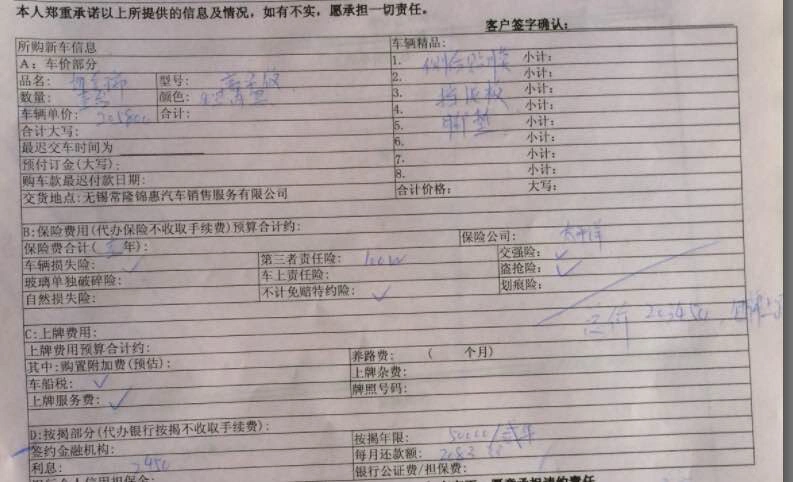 本人郑重承诺以上所提供的信息及情况，如有不实，愿承担一切责任。
客户签字确认：
所购新车信息 车辆精品：
A：车价部分 1. 全车贴膜 小计：
品名： 型号： 2. 小计：
数量： 颜色： 3. 挡泥板 小计：
车辆单价：205800 合计： 4. 小计：
合计大写： 5. 脚垫 小计：
最迟交车时间为 6. 小计：
预付订金(大写)： 7. 小计：
购车款最迟付款日期： 8. 小计：
交货地点:无锡常隆锦惠汽车销售服务有限公司 合计价格： 大写：
B:保险费用(代办保险不收取手续费)预算合计约：
保险费合计( 年)： 保险公司：太平洋
车辆损失险：✓ 第三者责任险：100W 交强险：✓
玻璃单独破碎险： 车上责任险： 盗抢险：✓
自然损失险： 不计免赔特约险：✓ 划痕险：
总价 203450
C:上牌费用：
上牌费用预算合计约：
其中:购置附加费(预估)： 养路费： ( 个月)
车船税：✓ 上牌杂费：
上牌服务费：✓ 牌照号码：
D:按揭部分(代办银行按揭不收取手续费)：
签约金融机构： 按揭年限：50000/贰年
利息：2450 每月还款额：2083
银行公证费/担保费：